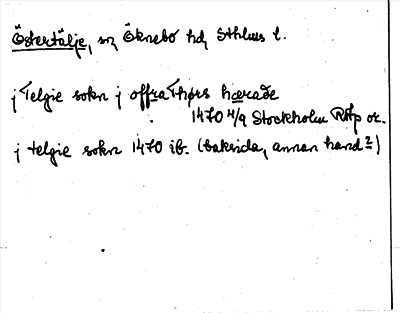 Östertälje, sn, Öknebo hd, Sthlms l.
j Telgie sokn j offra Thørs hærade
1470 4/9 Stockholm RAp or.
j telgie sokn 1470 ib. (baksida, annan hand?)